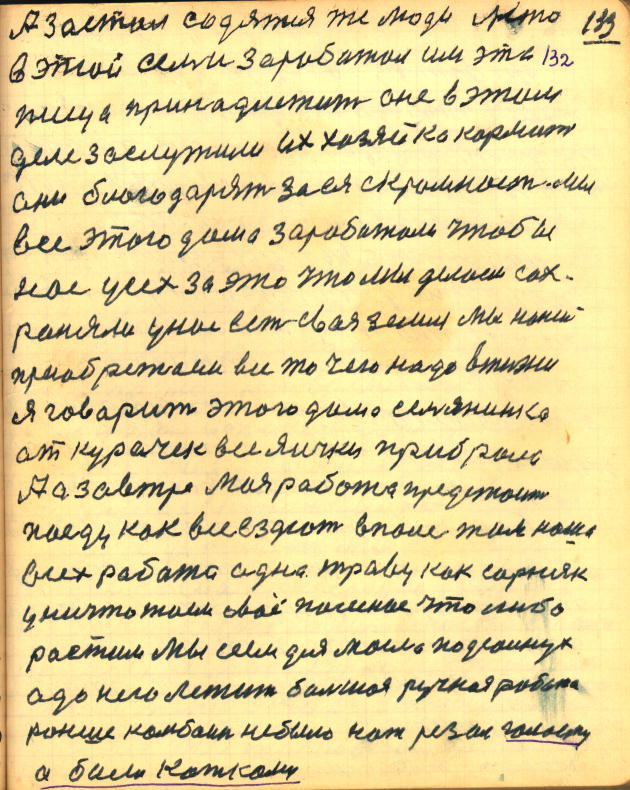 А за стол содятся же люди лето 133
в этой семи заработал им эта 132
пища принадлежит оне в этом
деле заслужили их хозяйка кормит
они благодарят за ся скромност. мы
все этого дома заработали чтобы
нас усех за это что мы делаем сох-
роняли унас ест своя земля мы наней
приобретаем все то чего надо вжизни
я говарит этого дома семянинка
от курачек все яички прибрала
А за завтре моя работа предстоит
поеду как все ездют вполе там наша
всех работа одна траву как сорняк
уничтожаем своё посеное что либо
растим мы сеем для масла подсолнух
а до него лежит балшая ручная работа
ранше камбаин небыло нож резал головку
а били катками